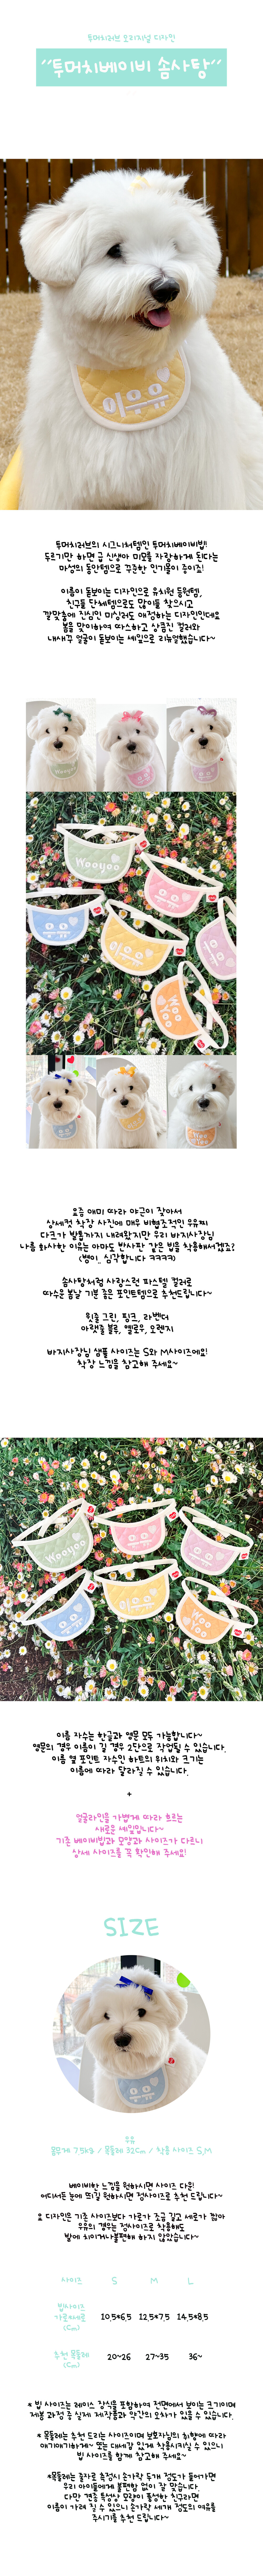 투머치러브 오리지널 디자인
"투머치베이비 솜사탕"
이유유
투머치러브의 시그니처템인 투머치베이비빕!!
두르기만 하면 급 신생아 미모를 자랑하게 된다는
마성의 동안템으로 꾸준한 인기몰이 중이죠!
이름이 돋보이는 디자인으로 유치원 등원템,
친구들 단체템으로도 많이들 찾으시고
깔맞춤에 진심인 미싱러도 애정하는 디자인인데요
봄을 맞이하여 따스하고 상큼한 컬러와
내새꾸 얼굴이 돋보이는 쉐입으로 리뉴얼했습니다~
Wooyoo
유유
이유유
WOO
YOO
요즘 애미 따라 야근이 잦아서
상세컷 착장 사진에 매우 비협조적인 유유찌
다크가 발톱까지 내려왔지만 우리 바지사장님
나름 화사한 이유는 아마도 반사판 같은 빕을 착용해서겠죠?
(병이.. 심각합니다 ㅋㅋㅋㅋ)
솜사탕처럼 사랑스런 파스텔 컬러로
따수운 봄날 기분 좋은 포인트템으로 추천드립니다~
윗줄 그린, 핑크, 라벤더
아랫줄 블루, 옐로우, 오렌지
바지사장님 샘플 사이즈는 S와 M사이즈에요!
착장 느낌을 참고해 주세요~
Wooyoo
유유
이유유
WOO
이름 자수는 한글과 영문 모두 가능합니다~
영문의 경우 이름이 길 경우 2단으로 작업될 수 있습니다.
이름 옆 포인트 자수인 하트의 위치와 크기는
이름에 따라 달라질 수 있습니다.
+
얼굴라인을 가볍게 따라 흐르는
새로운 쉐입입니다~
기존 베이비빕과 모양과 사이즈가 다르니
상세 사이즈를 꼭 확인해 주세요!
SIZE
유유
유유
몸무게 7.5kg / 목둘레 32cm / 착용 사이즈 S,M
베이비한 느낌을 원하시면 사이즈 다운!
어디서든 눈에 띄길 원하시면 정사이즈로 추천 드립니다~
요 디자인은 기존 사이즈보다 가로가 조금 길고 세로가 짧아
유유의 경우는 정사이즈로 착용해도
발에 치이거나불편해 하지 않았습니다~
사이즈 S M L
빕사이즈
가로x세로
(cm)
10.5*6.5 12.5*7.5 14.5*8.5
추천 목둘레
(cm)
20~26 27~35 36~
* 빕 사이즈는 레이스 장식을 포함하여 전면에서 보이는 크기이며
제봉 과정 중 실제 제작품과 약간의 오차가 있을 수 있습니다.
* 목둘레는 추천 드리는 사이즈이며 보호자님의 취향에 따라
애기애기하게~ 또는 대세감 있게 착용시키실 수 있으니
빕 사이즈를 함께 참고해 주세요~
*목둘레는 줄자로 측정시 손가락 두개 정도가 들어가면
우리 아이들에게 불편함 없이 잘 맞습니다.
다만 견종 특성상 모량이 풍성한 친구라면
이름이 가려 질 수 있으니 손가락 세개 정도의 여유를
주시기를 추천 드립니다~